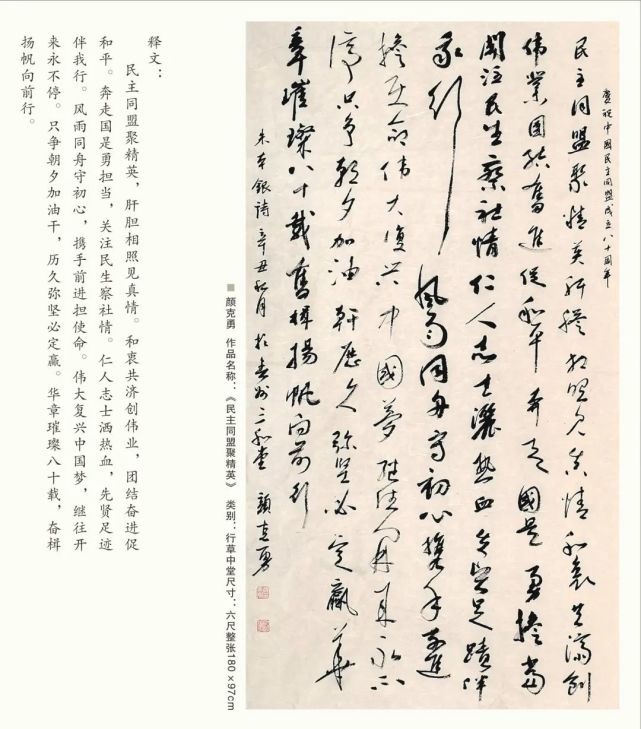 慶祝中國民主同盟成立八十周年
民主同盟聚精英肝膽相照見真情和衷共濟創
偉業團結奮進促和平奔走國是勇擔當
關注民生察社情仁人志士灑熱血先賢足蹟伴
我行風雨同舟守初心攜手前進
擔使命偉大復興中國夢繼往開來永不
停只争朝夕加油幹歷久弥堅必定贏華
章璀璨八十載奮楫揚帆向前行
朱本銀詩辛丑秋月於三和堂 顏克勇
■颜克勇 作品名称：《民主同盟聚精英》 类别：行草中堂尺寸：六尺整张180×97cm
释文：
民主同盟聚精英，肝胆相照见真情。和衷共济创伟业，团结奋进促
和平。奔走国是勇担当，关注民生察社情。仁人志士洒热血，先贤足迹
伴我行。风雨同舟守初心，携手前进担使命。伟大复兴中国梦，继往开
来永不停。只争朝夕加油干，历久弥坚必定赢。华章璀璨八十载，奋楫
扬帆向前行。